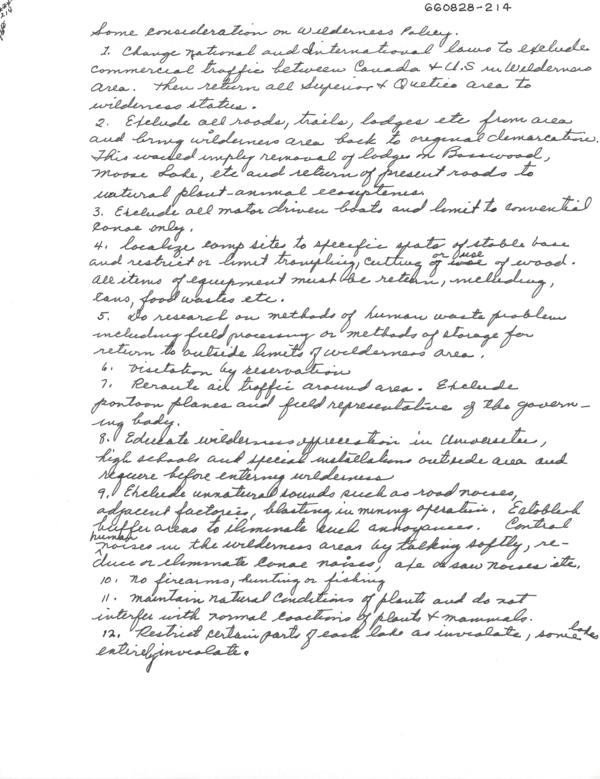 GG0828-214
Some consideration on Wilderness Policy.
1. Change National and International laws to exclude
commercial traffic between Canada & U.S in Wilderness
area. Then return all Superior & Quetico area to
wilderness status.
2. Exclude all roads, trails, lodges etc from area
and bring wilderness area back to original demarcation.
This would imply removal of lodges on Basswood,
Moose Lake, etc and return of present roads to
natural plant-animal ecosystems.
3. Exclude all motor driven boats and limit to convential
canoe only.
4. Localize camp sites to specific spots of stable base
and restrict or limit trampling, cutting or use of wood.
All items of equipment must be return, including,
cans, food wastes etc.
5. Do research on methods of human waste problem
including field processing or methods of storage for
return to outside limits of wilderness area.
6. Visitation by reservation
7. Reroute air traffic around area. Exclude
pontoon planes and field representative of the govern-
ing body.
8. Educate wilderness appreceation in Universities,
high schools and special installations outside area and
require before entering wilderness
9. Exclude unnatural sounds such as road noises,
adjacent factories, blasting in mining operation. Establish
buffer areas to eliminate such annoyances. Control
human noises in the wilderness areas by talking softly, re-
duce or eliminate canoe noises, axe or saw noises etc.
10. No firearms, hunting or fishing
11. Maintain natural conditions of plants and do not
interfer with normal coactions of plants & mammals.
12. Restrict certain parts of each lake as inviolate, some lakes
entirely inviolate.